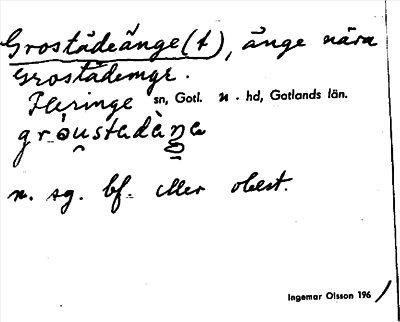 Grostädeänge(t), änge nära
Grostädemyr.
Fleringe sn, Gotl. n. hd, Gotlands län.
n. sg. bf. eller obest.
Ingemar Olsson 196